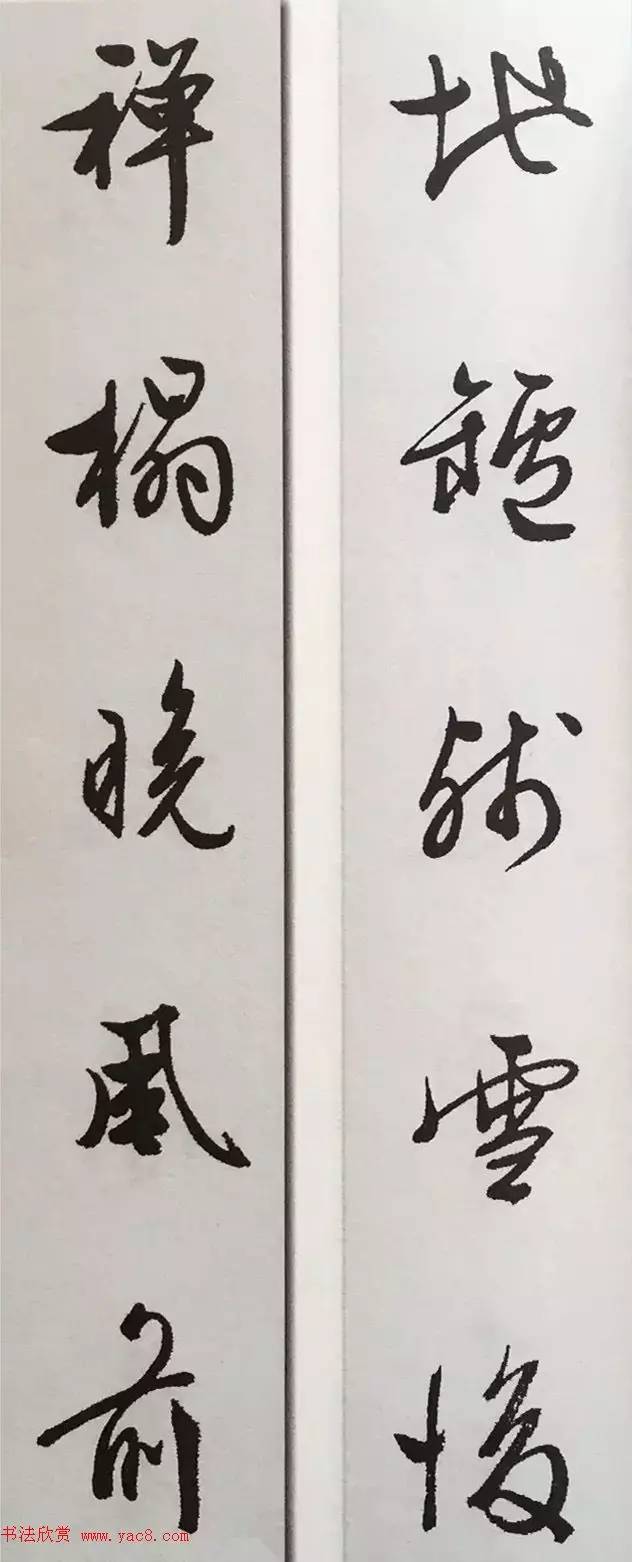 地罏殘雪後
禪榻晚風前
书法欣赏 www.yac8.com